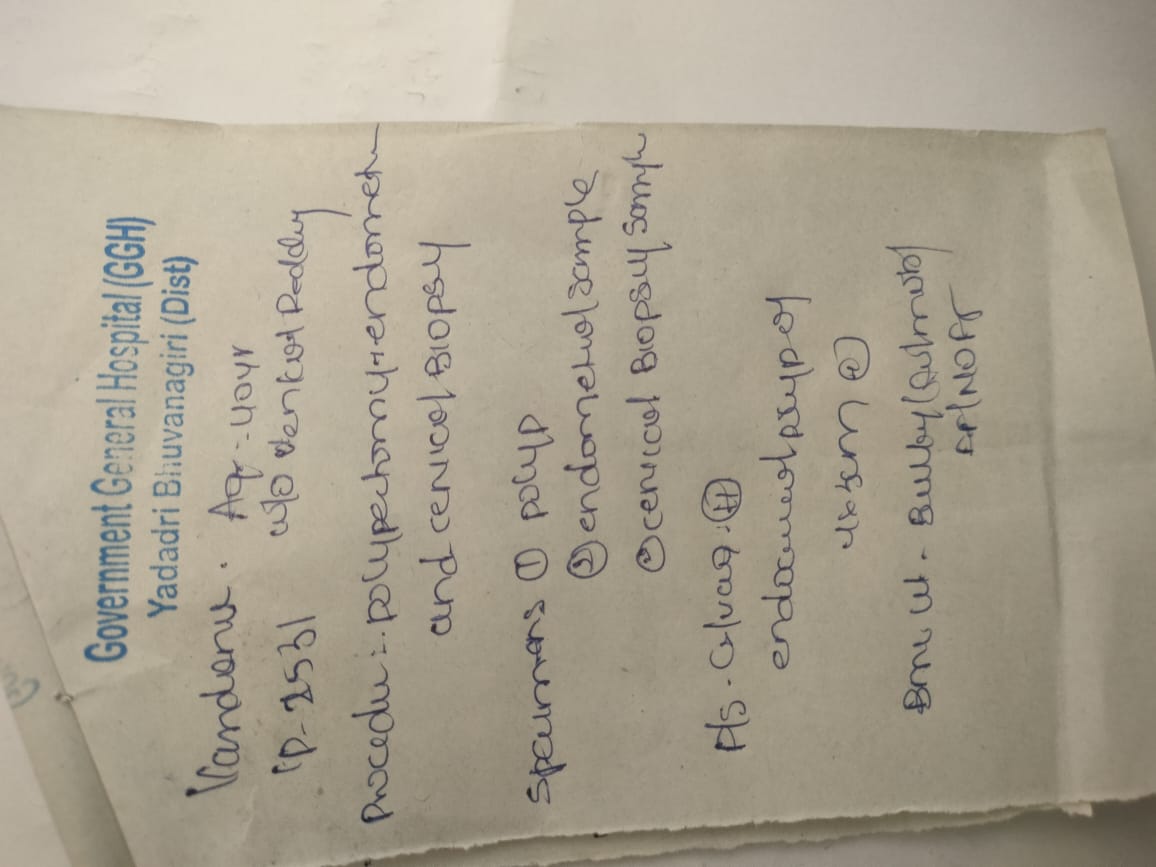 Government General Hospital (GGH)
Yadadri Bhuvanagiri (Dist)
Vandana. Age - 40yr
IP-2531 w/o Venkat Reddy
Procedure:- polypectomy + endometri
and cervical Biopsy
Specimens ① polyp
② endometrial sample
③ cervical Biopsy sample
P/s - Cx/vag: H
endocervical polyp of
4x3cm
Bulky